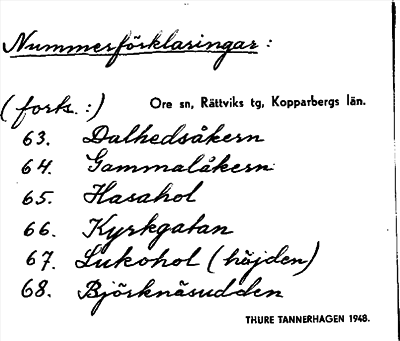 Nummerförklaringar:
(forts.:) Ore sn, Rättviks tg, Kopparbergs län.
63. Dalhedsåkern
64. Gammalåkern
65. Hasahol
66. Kyrkgatan
67. Lukohol (höjden)
68. Björknäsudden
THURE TANNERHAGEN 1948.